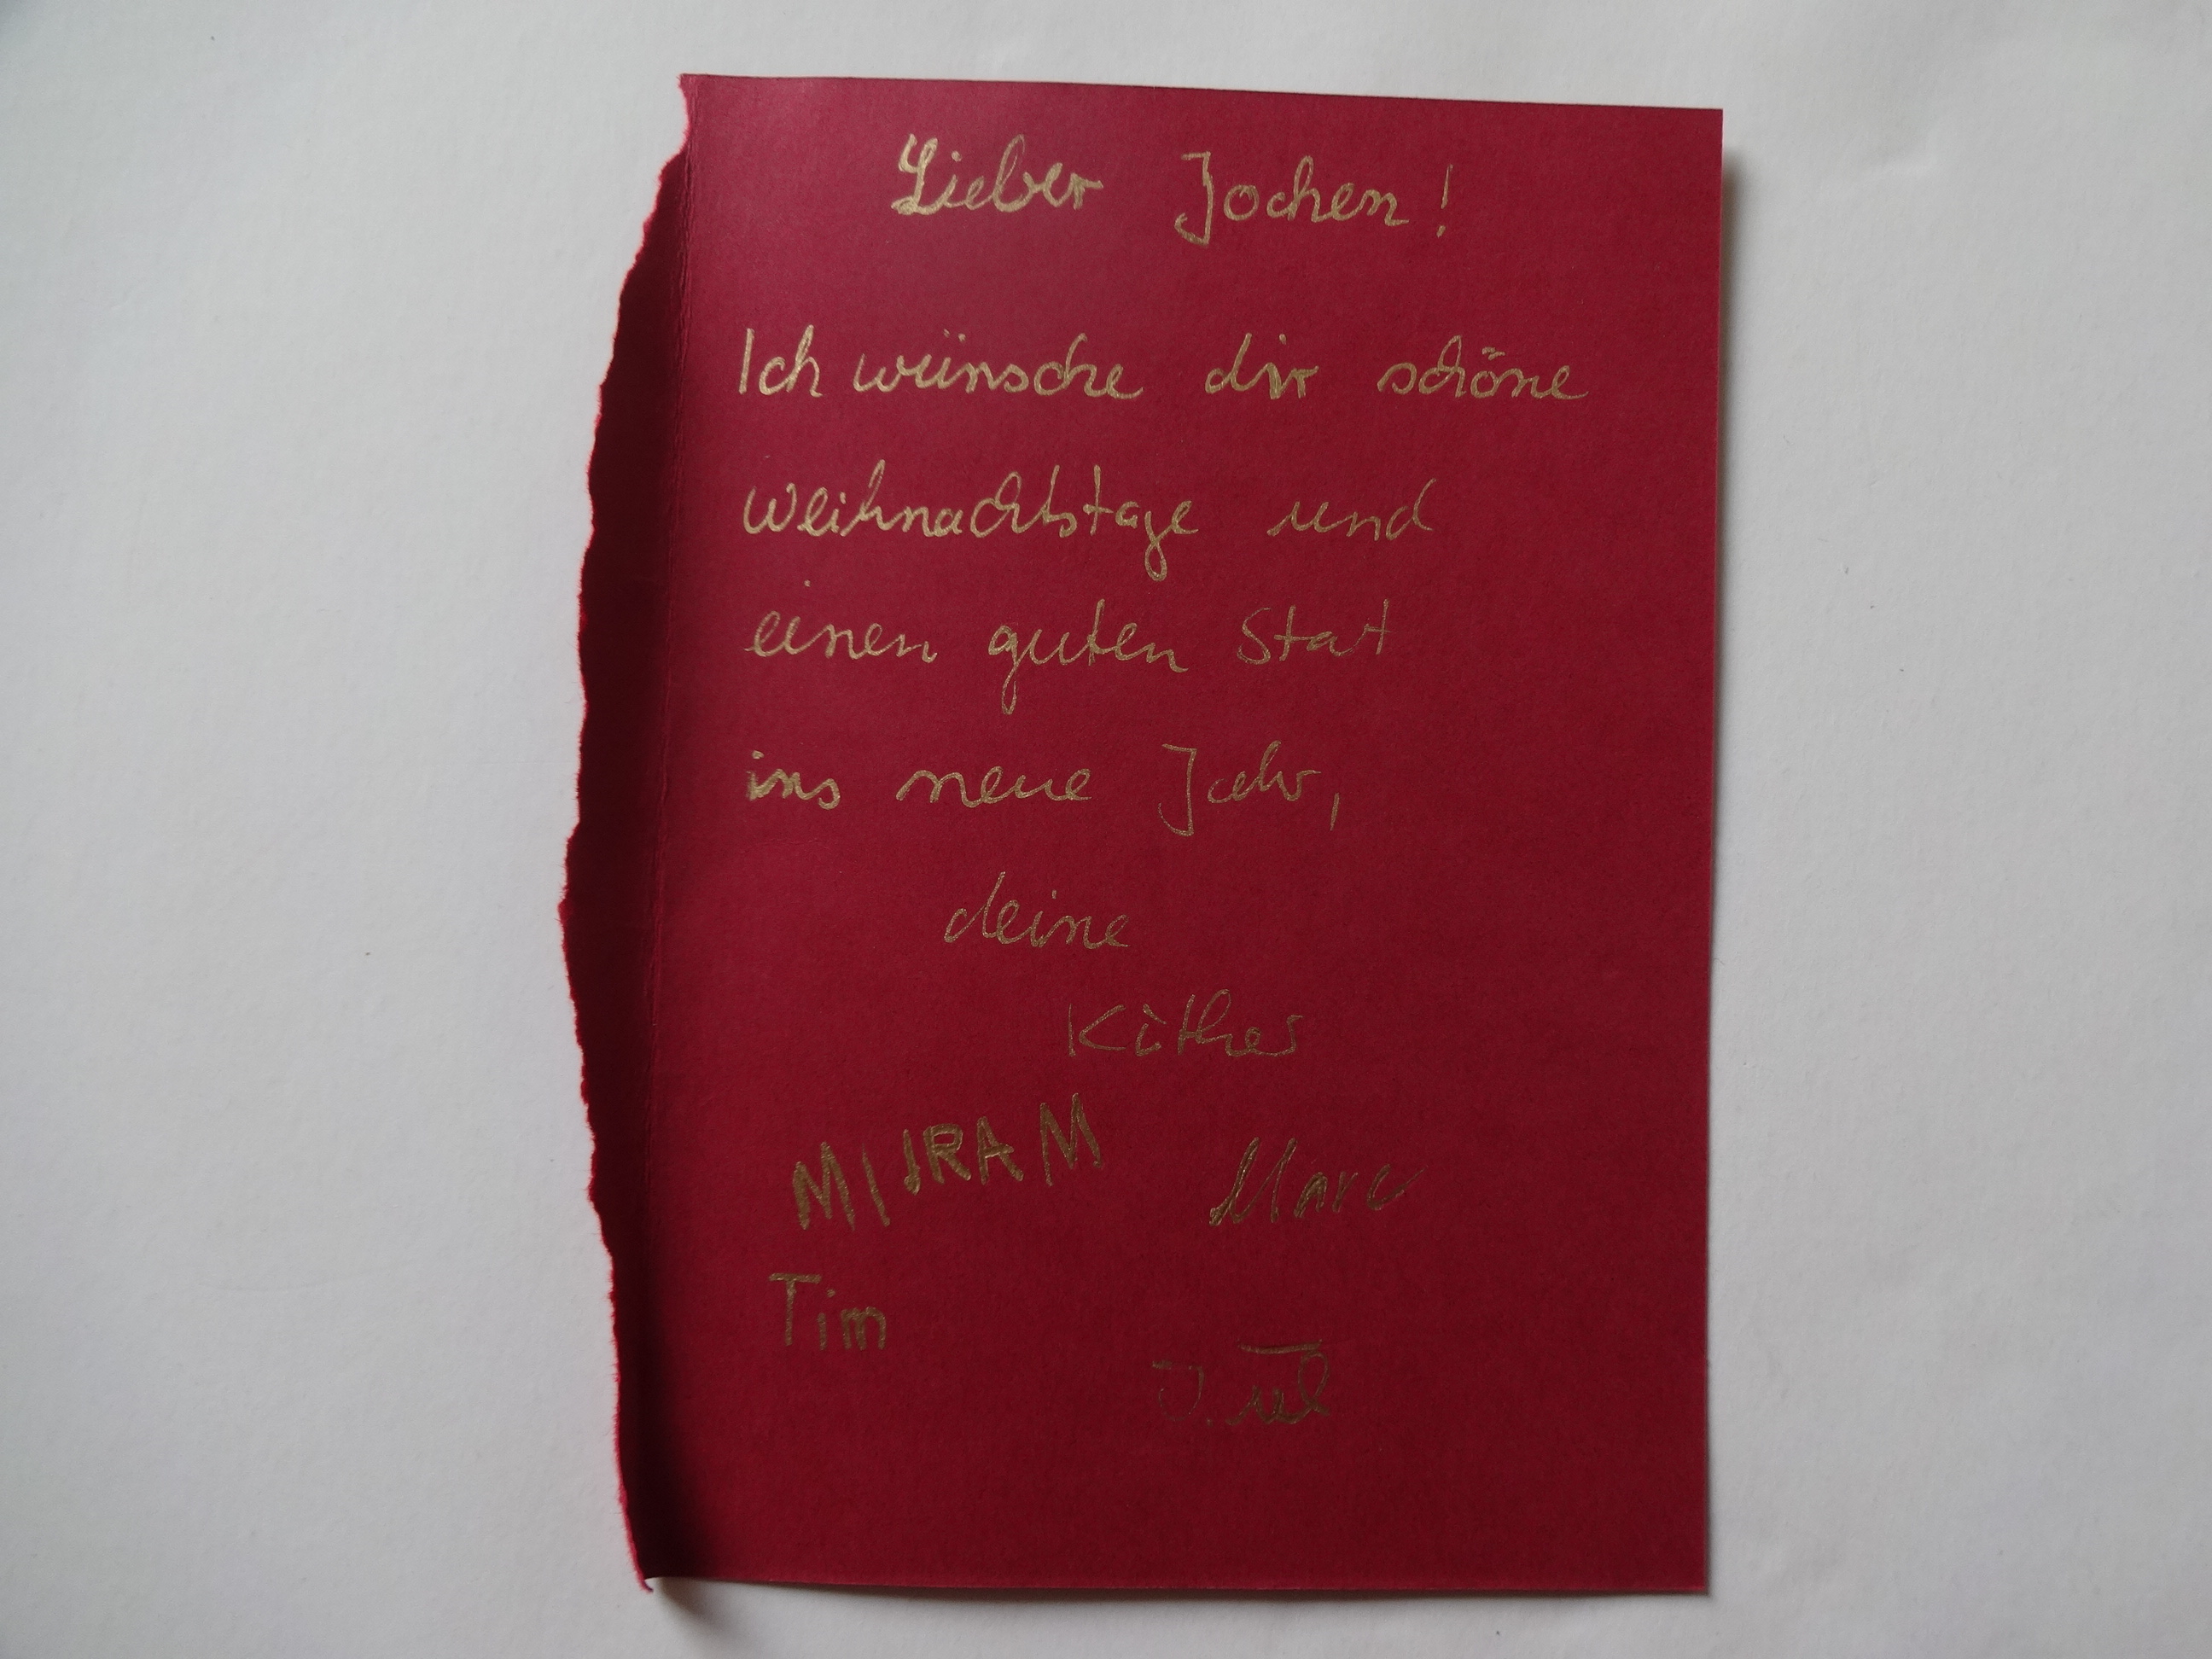 Lieber Jochen!
Ich wünsche dir schöne
Weihnachtstage und
einen guten Start
ins neue Jahr,
deine
MIJRAM Marc
Tim